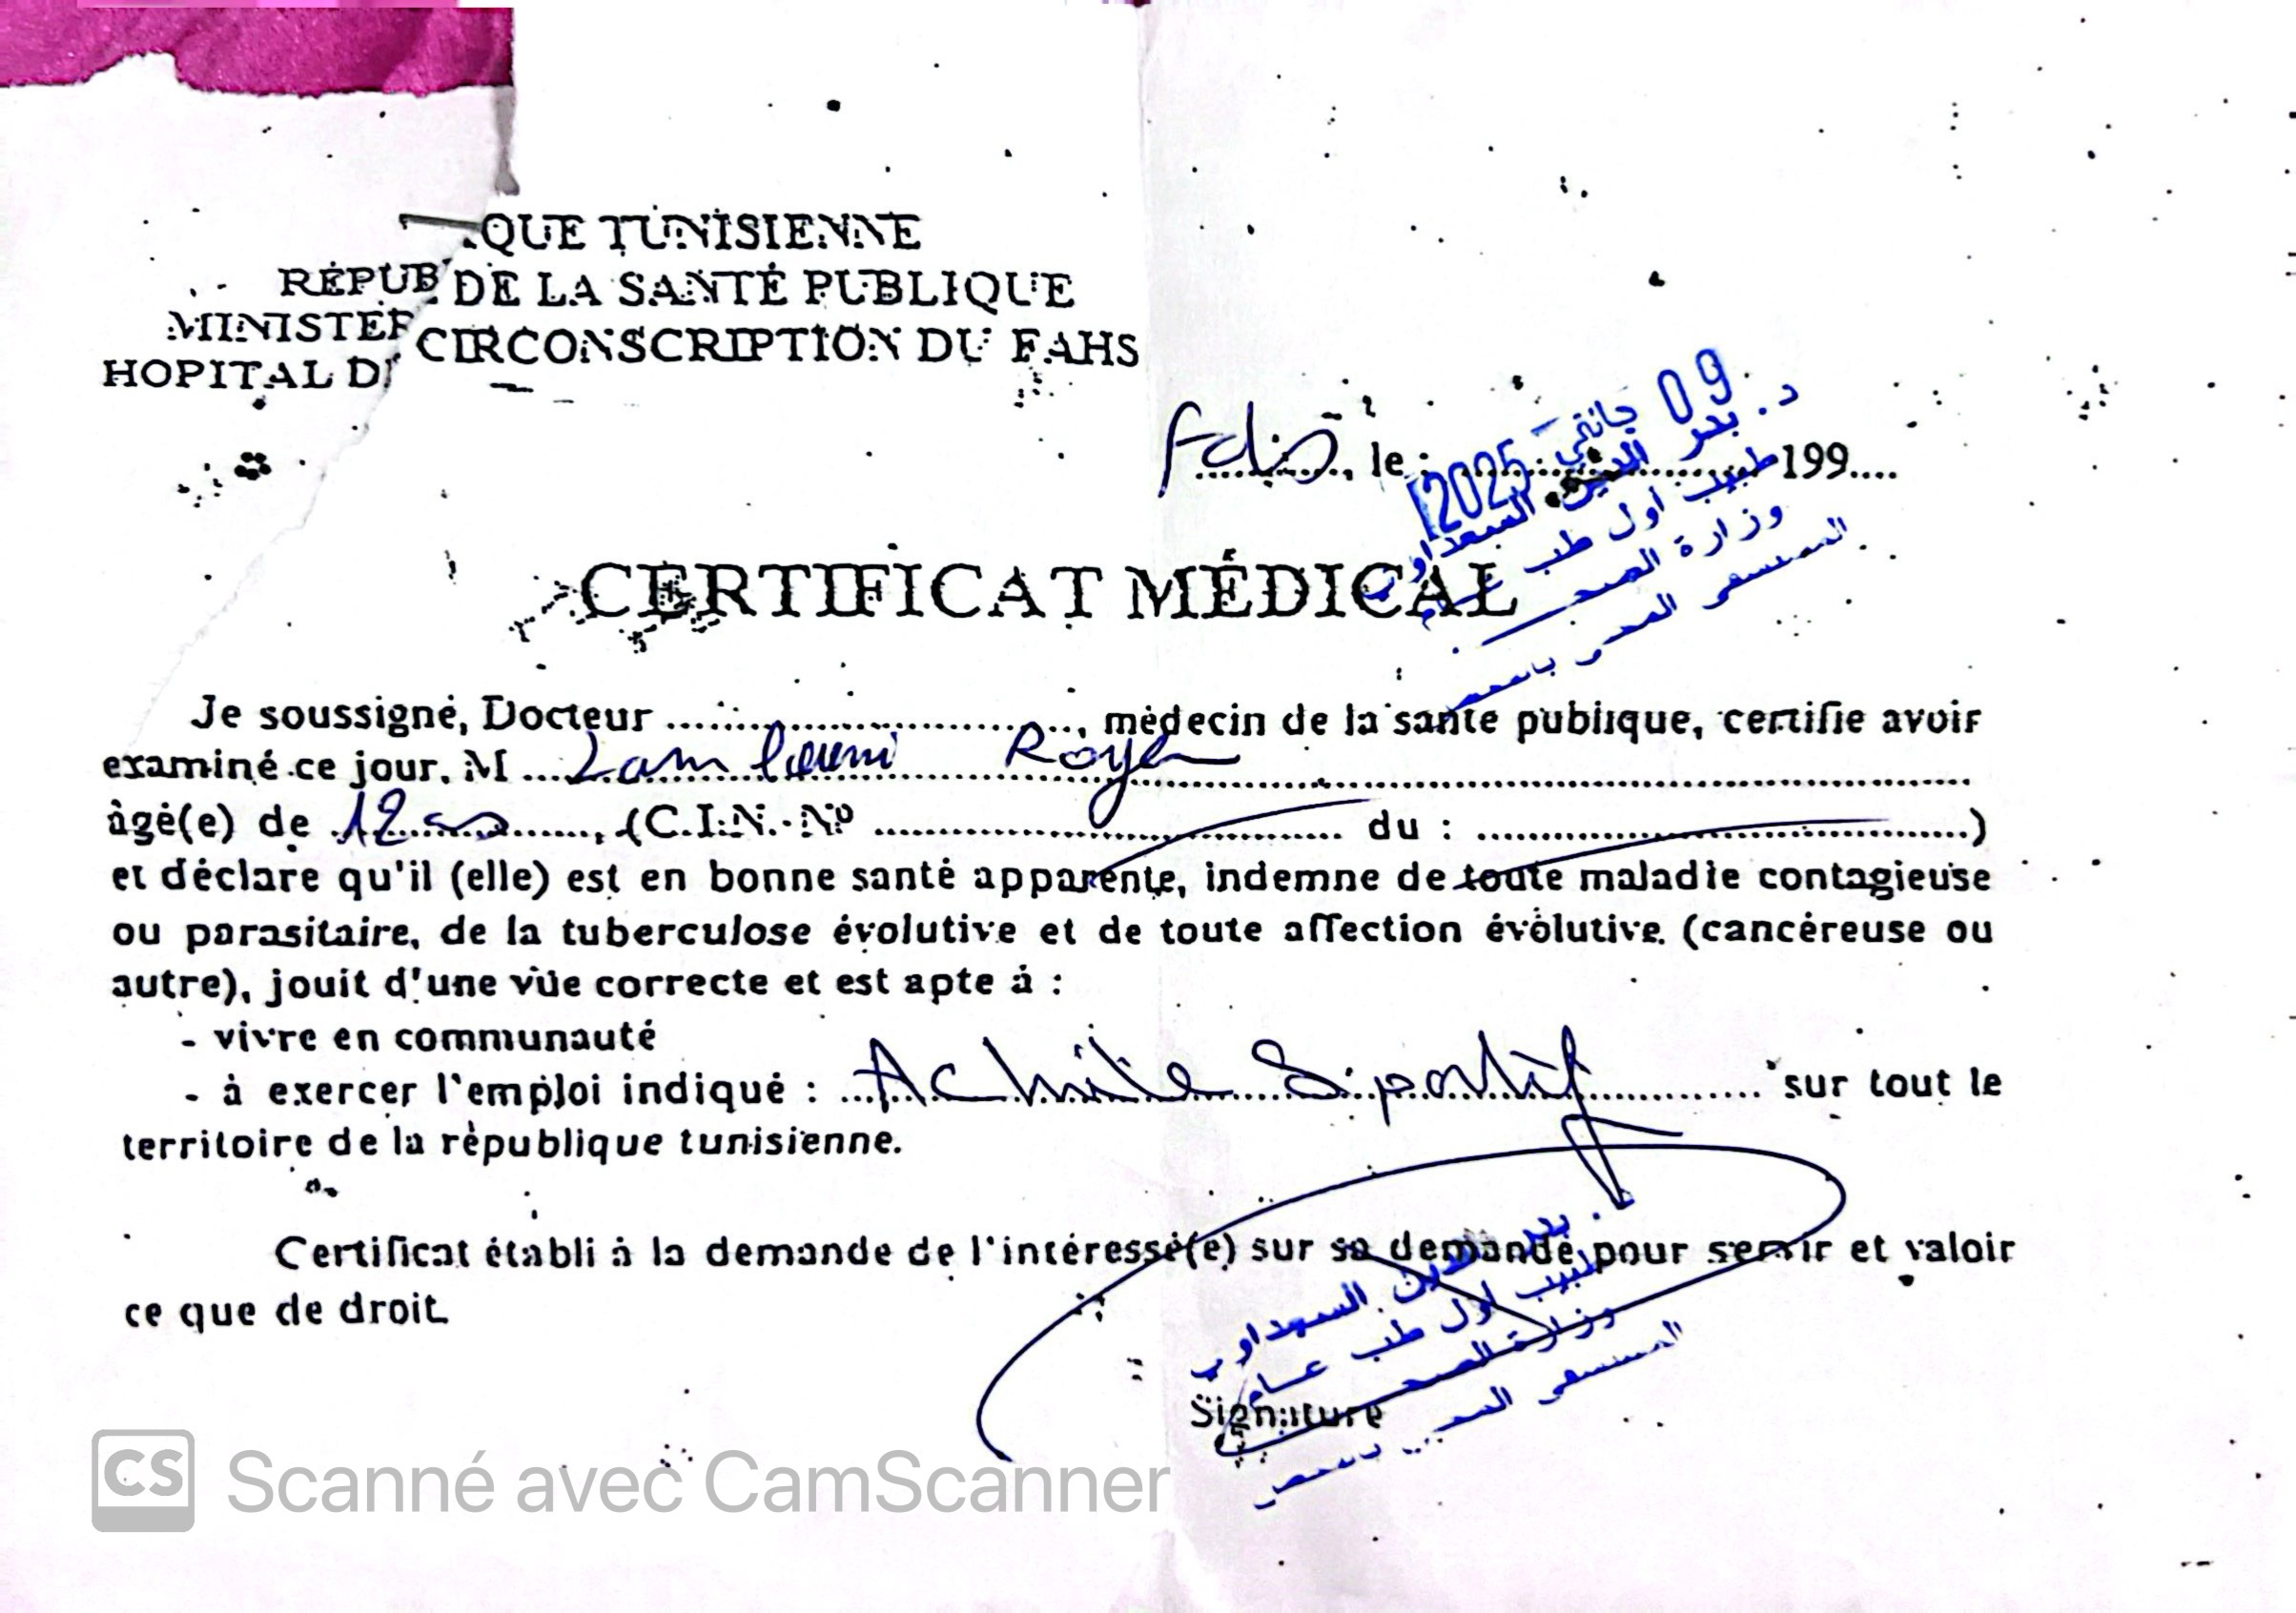 QUE TUNISIENNE
RÉPUB DE LA SANTÉ PUBLIQUE
MINISTER CIRCONSCRIPTION DU FAHS
HOPITAL D
09 جانفي 2025
Fahs, le : 199....
د. بدر الدين السعداوي
طبيب اول طب عام
وزارة الصحة
CERTIFICAT MÉDICAL
Je soussigné, Docteur ........................, médecin de la santé publique, certifie avoir
examiné ce jour, M ... Zamlouni Roya
âgé(e) de 12 ans, (C.I.N. Nº ........................ du : ........................)
et déclare qu'il (elle) est en bonne santé apparente, indemne de toute maladie contagieuse
ou parasitaire, de la tuberculose évolutive et de toute affection évolutive (cancéreuse ou
autre), jouit d'une vue correcte et est apte à :
- vivre en communauté
- à exercer l'emploi indiqué : Activité Sportif sur tout le
territoire de la république tunisienne.
Certificat établi à la demande de l'intéressé(e) sur sa demande pour servir et valoir
ce que de droit.
بدر الدين السعداوي
طبيب اول طب عام
وزارة الصحة
Signature
CS Scanné avec CamScanner